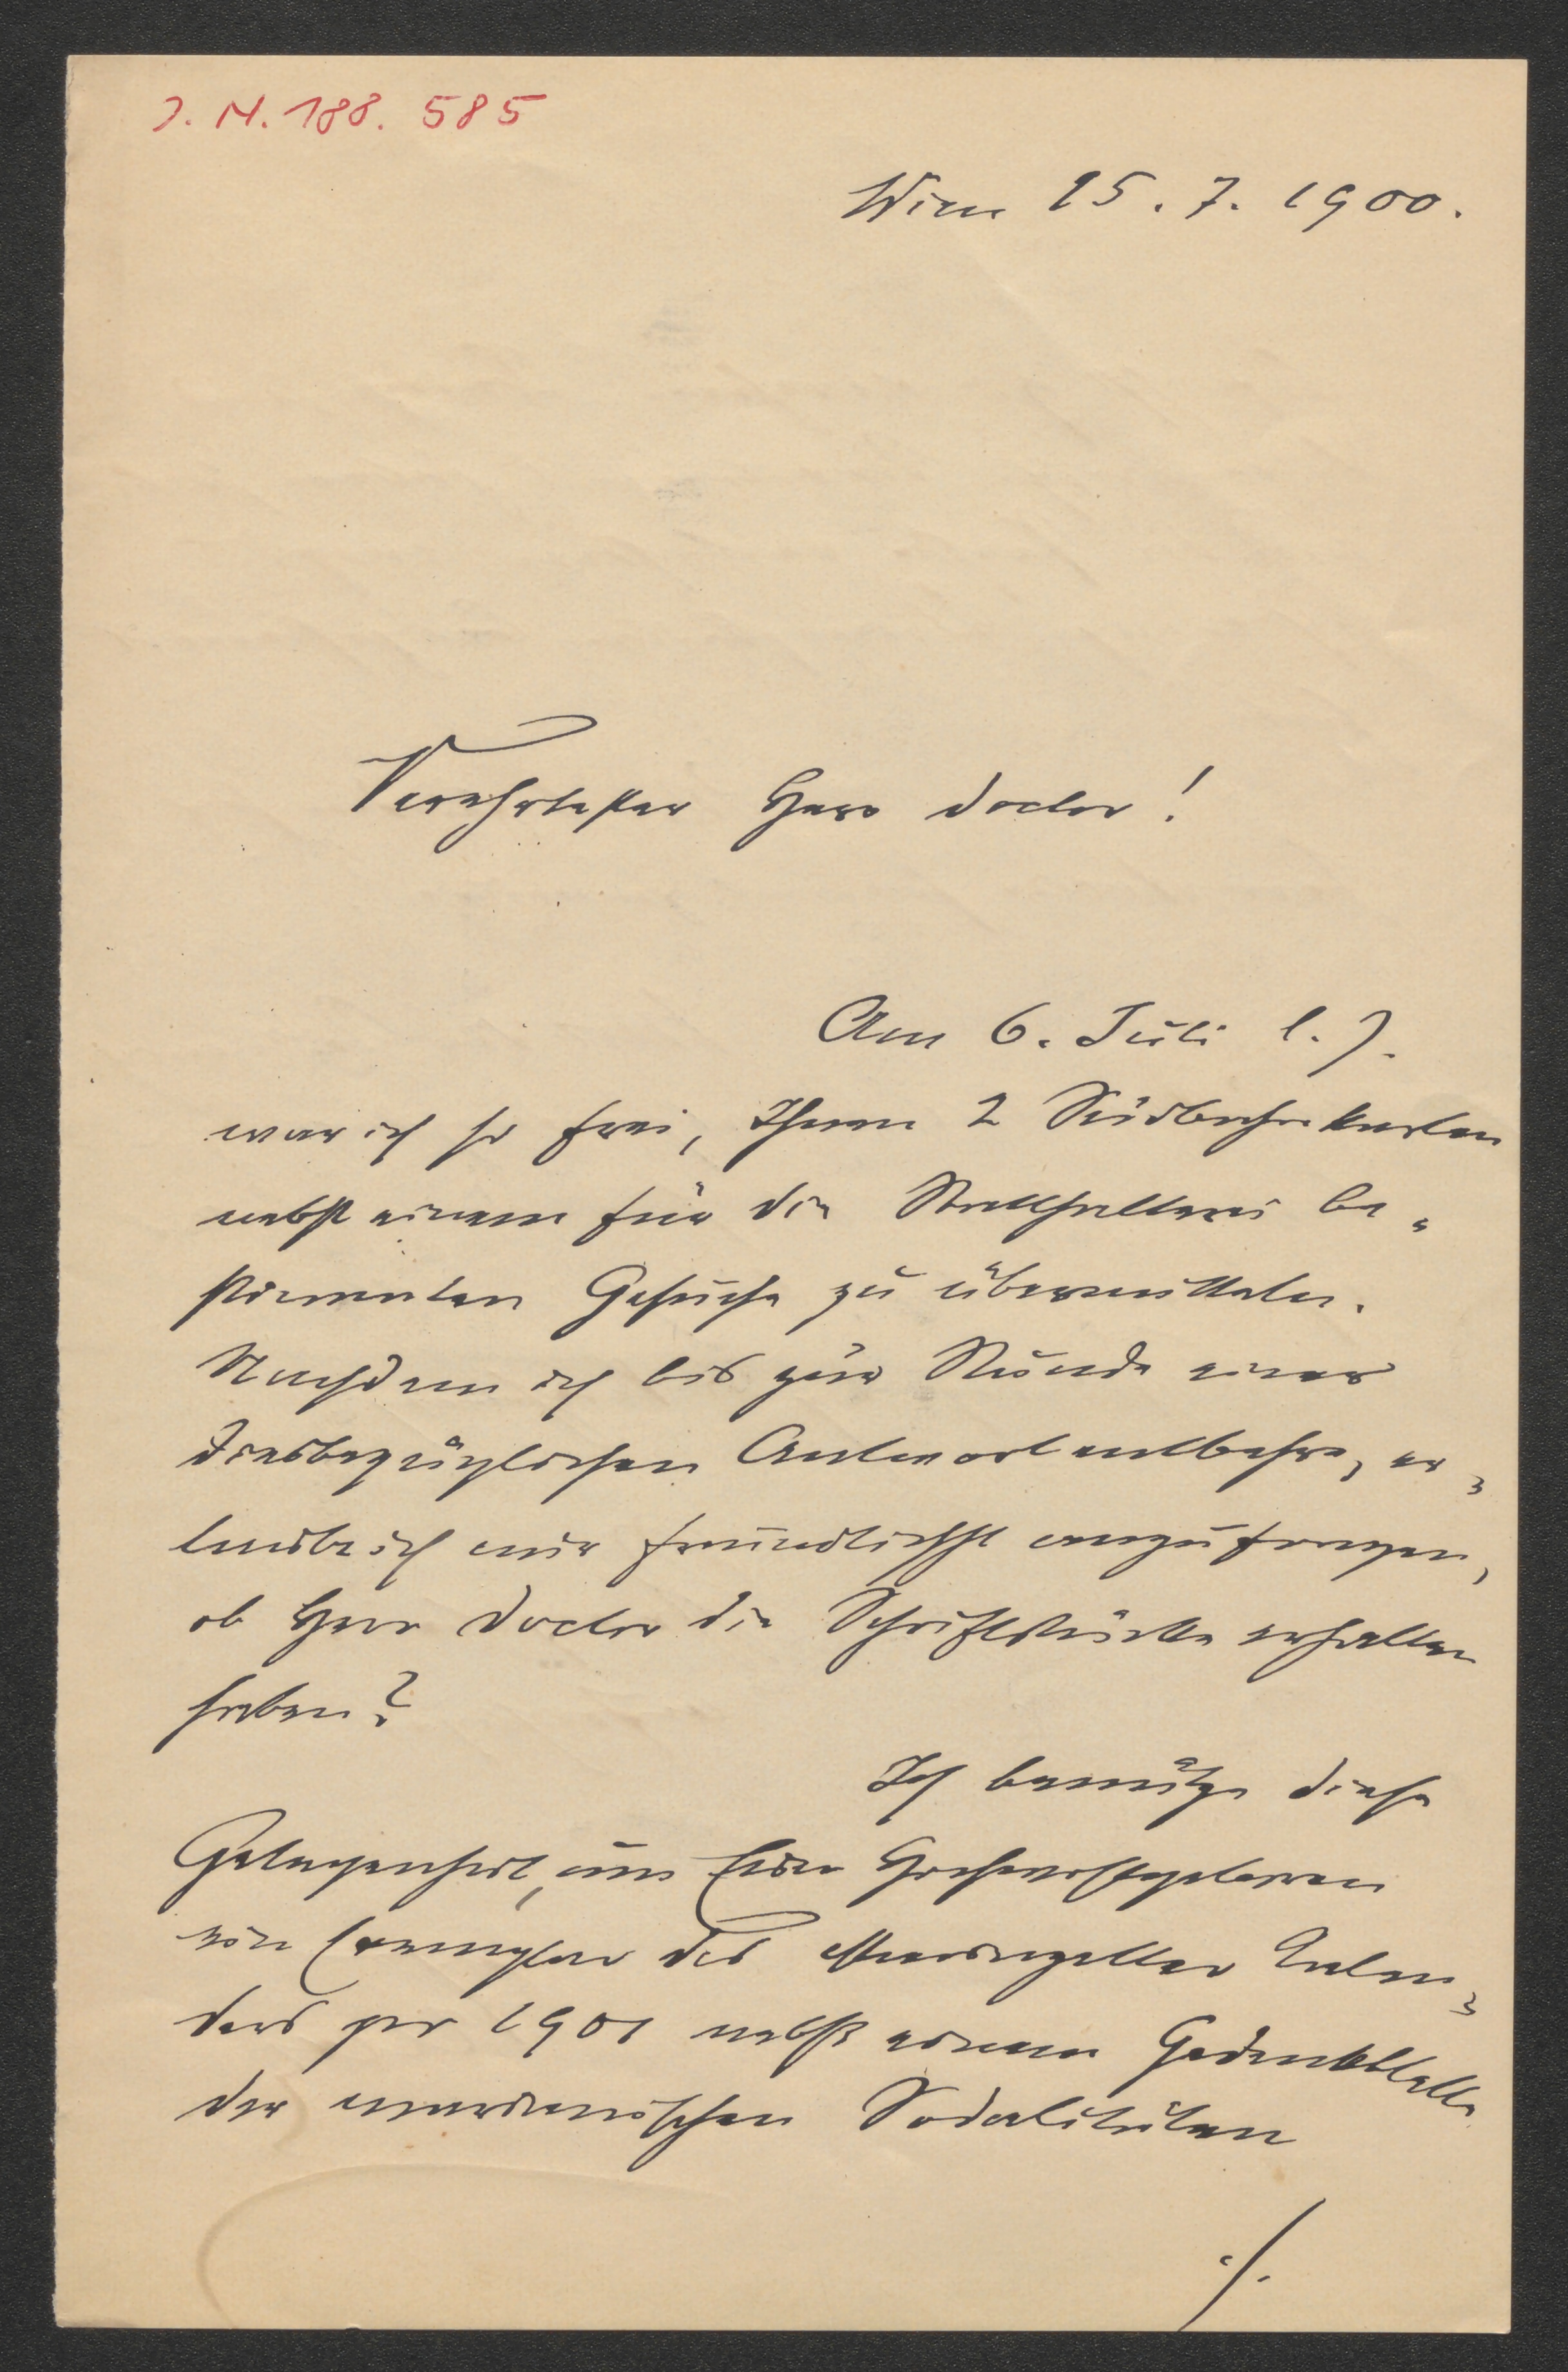 J. N. 188. 585
Wien 15. 7. 1900.
Verehrtester Herr Doctor!
Am 6. Juli l. J.
war ich so frei, Ihnen 2 Südbahnkarten
nebst einem für die Statthalterei be„
stimmten Gesuche zu übermitteln.
Nachdem ich bis zur Stunde einer
diesbezüglichen Antwort entbehre, er„
laube ich mir freundlichst anzufragen,
ob Herr Doctor die Schriftstücke erhalten
haben?
Ich benütze diese
Gelegenheit, um Euer Hochwohlgeboren
ein Exemplar des Mariazeller Kalen„
ders per 1901 nebst einem Gedenkblatte
der marianischen Sodalitäten
./.